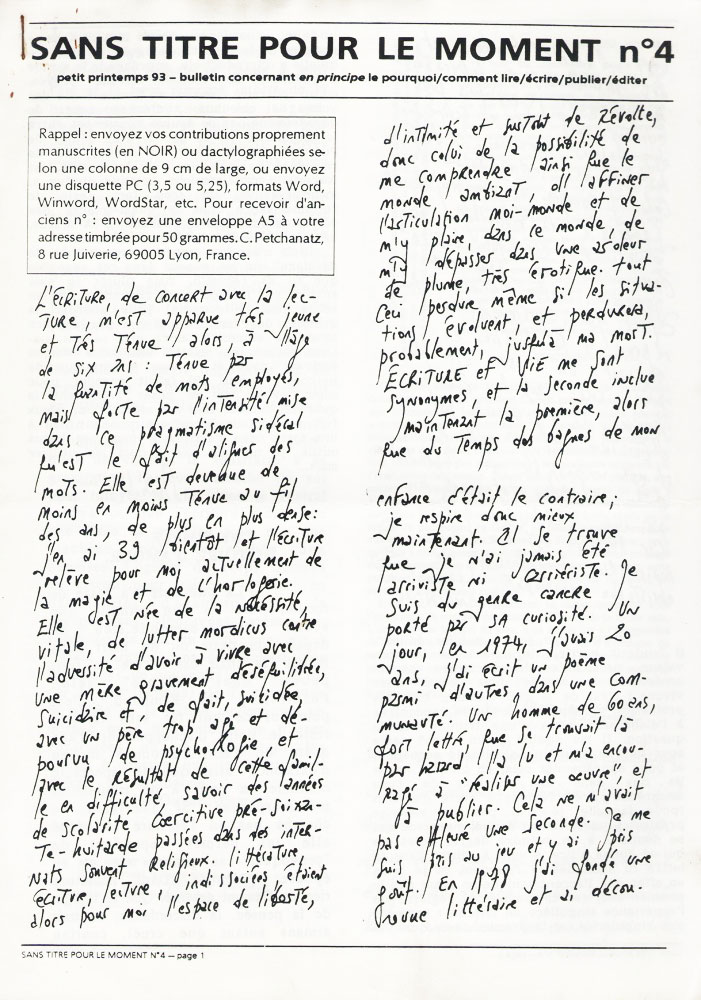 SANS TITRE POUR LE MOMENT n°4
petit printemps 93 – bulletin concernant en principe le pourquoi/comment lire/écrire/publier/éditer
Rappel : envoyez vos contributions proprement
manuscrites (en NOIR) ou dactylographiées se-
lon une colonne de 9 cm de large, ou envoyez
une disquette PC (3,5 ou 5,25), formats Word,
Winword, WordStar, etc. Pour recevoir d'an-
ciens n° : envoyez une enveloppe A5 à votre
adresse timbrée pour 50 grammes. C. Petchanatz,
8 rue Juiverie, 69005 Lyon, France.
L'ÉCRITURE, de concert avec la lec-
TURE, m'est apparue très jeune
et Très Ténue alors, à l'âge
de six ans : Ténue par
la quantité de mots employés,
mais forte par l'intensité mise
dans ce pragmatisme sidéral
qu'est le fait d'aligner des
mots. Elle est devenue de
moins en moins Ténue au fil
des ans, de plus en plus dense:
j'en ai 39 bientôt et l'écriture
relève pour moi actuellement de
la magie et de l'horlogerie.
Elle est née de la nécessité,
vitale, de lutter mordicus contre
l'adversité d'avoir à vivre avec
une mère gravement déséquilibrée,
suicidaire et, de fait, suicidée,
avec un père trop âgé et dé-
pourvu de psychologie, et
avec le résultat de cette famil-
le en difficulté, savoir des années
de scolarité coercitive pré-soixan-
Te-huitarde passées dans des inter-
nats souvent religieux. littérature,
écriture, lecture, indissociées, étaient
alors pour moi l'espace de liberté,
d'intimité et surtout de Révolte,
donc celui de la possibilité de
me comprendre ainsi que le
monde ambiant, d'affiner
l'articulation moi-monde et de
m'y plaire, dans ce monde, de
m'y dépasser dans une
de plume, très érotique. tout
Ceci perdure même si les situa-
tions évoluent, et perdurera,
probablement, jusqu'à ma mort.
ÉCRITURE et VIE me sont
synonymes, et la seconde inclue
maintenant la première, alors
que du Temps des bagnes de mon
enfance c'était le contraire;
je respire donc mieux
maintenant. Il se trouve
que je n'ai jamais été
arriviste ni carriériste. Je
suis du genre cancre
porté par SA curiosité. Un
jour, en 1974, j'avais 20
ans, j'ai écrit un poème
parmi d'autres, dans une com-
munauté. Un homme de 60 ans,
fort lettré, que se trouvait là
par hasard l'a lu et m'a encou-
ragé à "réaliser une œuvre", et
à publier. Cela ne m'avait
pas effleuré une seconde. Je me
suis pris au jeu et y ai pris
goût. En 1978 j'ai fondé une
revue littéraire et ai décou-
SANS TITRE POUR LE MOMENT N°4 – page 1